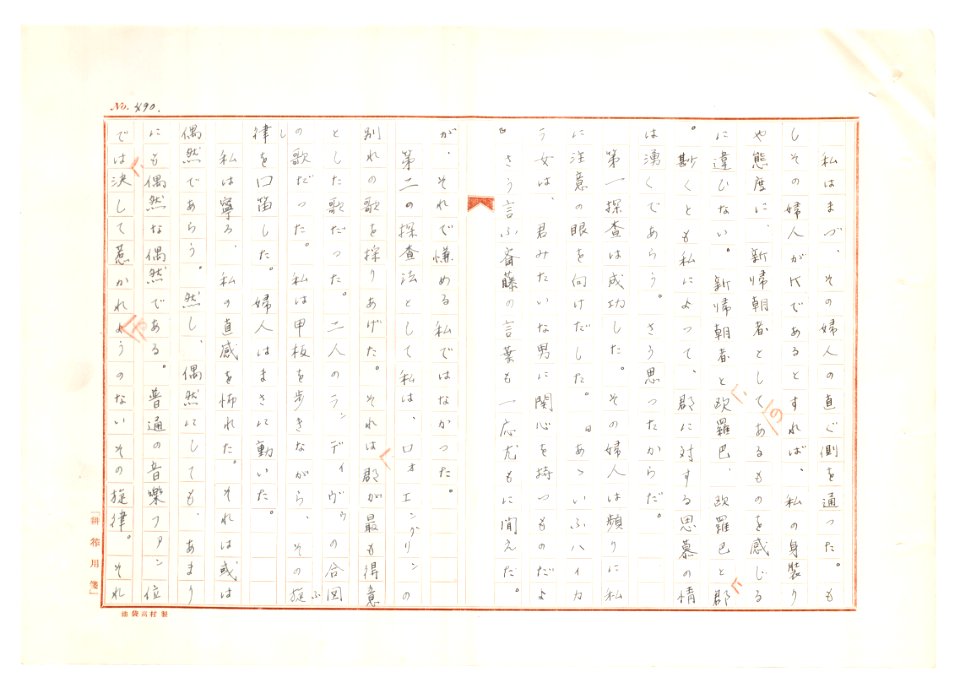 No. 490.
私はまづ、その婦人の直ぐ側を通った。も
しその婦人が代であるとすれば、私の身装り
や態度に、新帰朝者としてあるものを感じる
に違ひない。新帰朝者と欧羅巴、欧羅巴と郡
。尠くとも私によって、郡に対する思慕の情
は湧くであらう。さう思ったからだ。
第一探査は成功した。その婦人は頻りに私
に注意の眼を向けだした。
う女は、君みたいな男に関心を持つものだよ
。さう言ふ斎藤の言葉も一応尤もに聞えだ。
が、それで慊める私ではなかった。
第二の探査法として私は、ロオエングリンの
別れの歌を採りあげた。それは郡が最も得意
とした歌だった。二人のランディヴゥの合図
の歌だった。私は甲板を歩きながら、その旋
律を口笛した。婦人はまさに動いた。
私は寧ろ、私の直感を怖れた。それは或は
偶然であらう。然し、偶然にしても、あまり
にも偶然な偶然である。普通の音樂フアン位
では決して惹かれようのないその旋律。それ